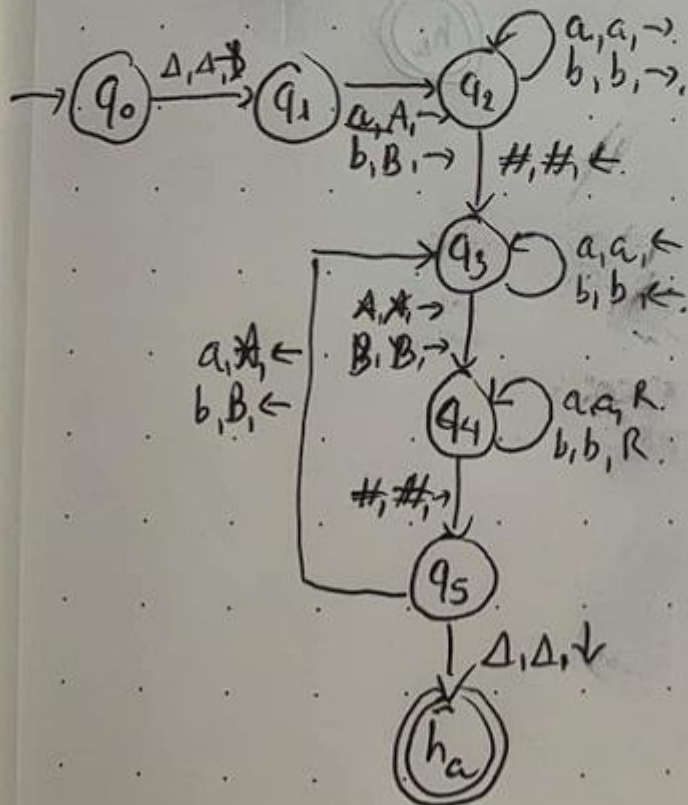 q₀
Δ, Δ,
q₁
a, A, →
b, B, →
q₂
a, a, →
b, b, →
#, #, ←
q₃
a, a, ←
b, b, ←
A, A, →
B, B, →
a, A, ←
b, B, ←
q₄
a, a, R
b, b, R
#, #, →
q₅
Δ, Δ, ↓
hₐ